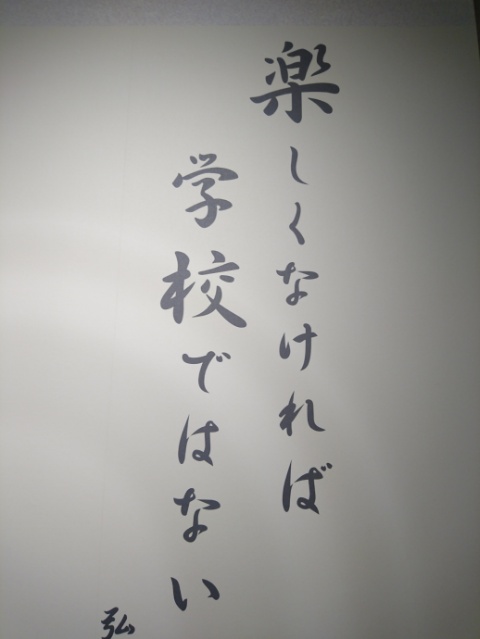 楽しくなければ
学校ではない
弘